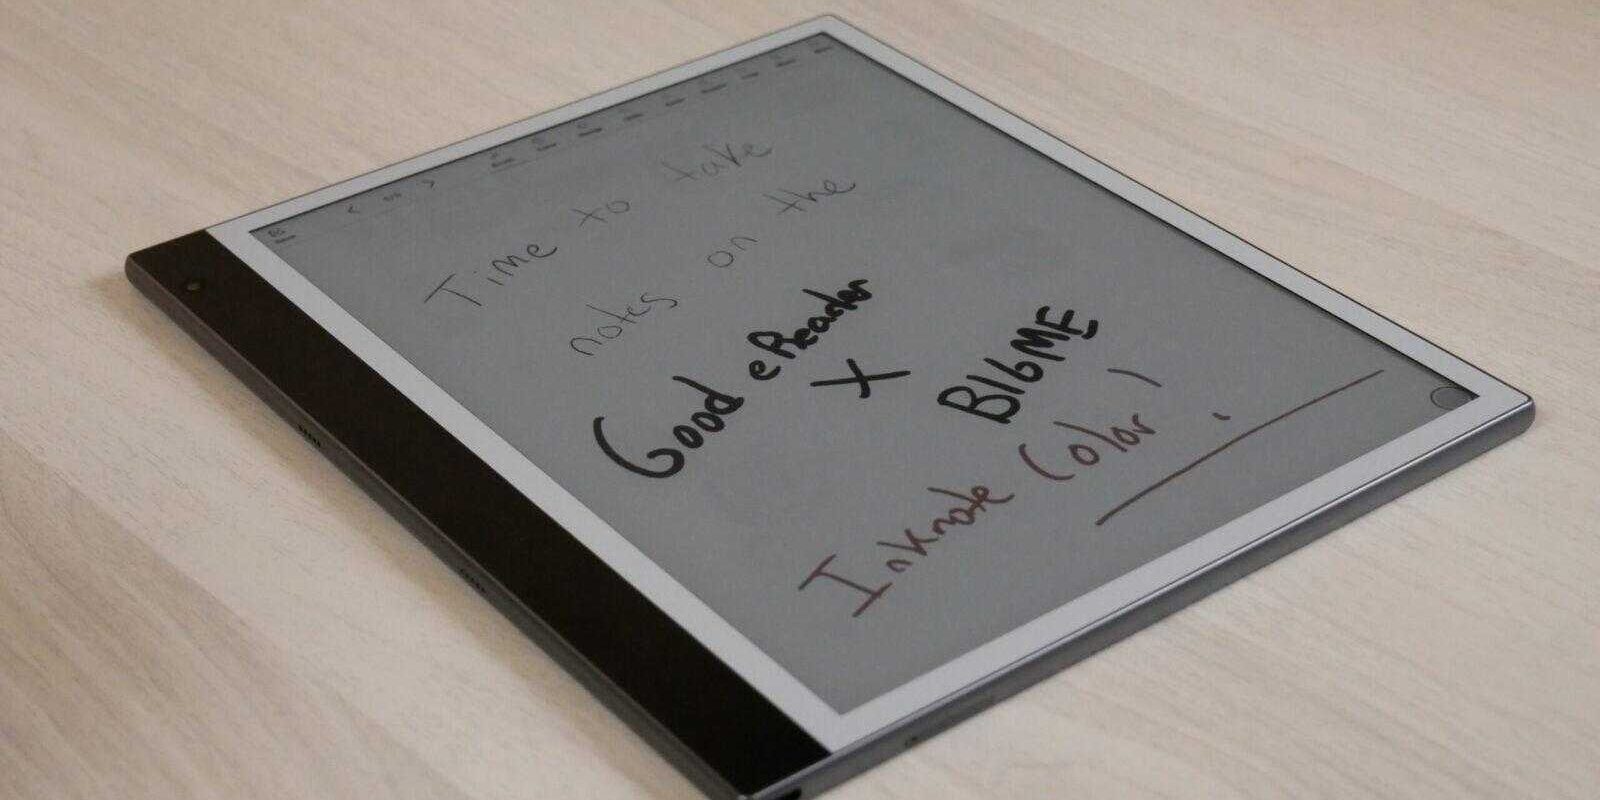 Time to take
notes on the
Good eReader
X
BIGME
Inknote Color!